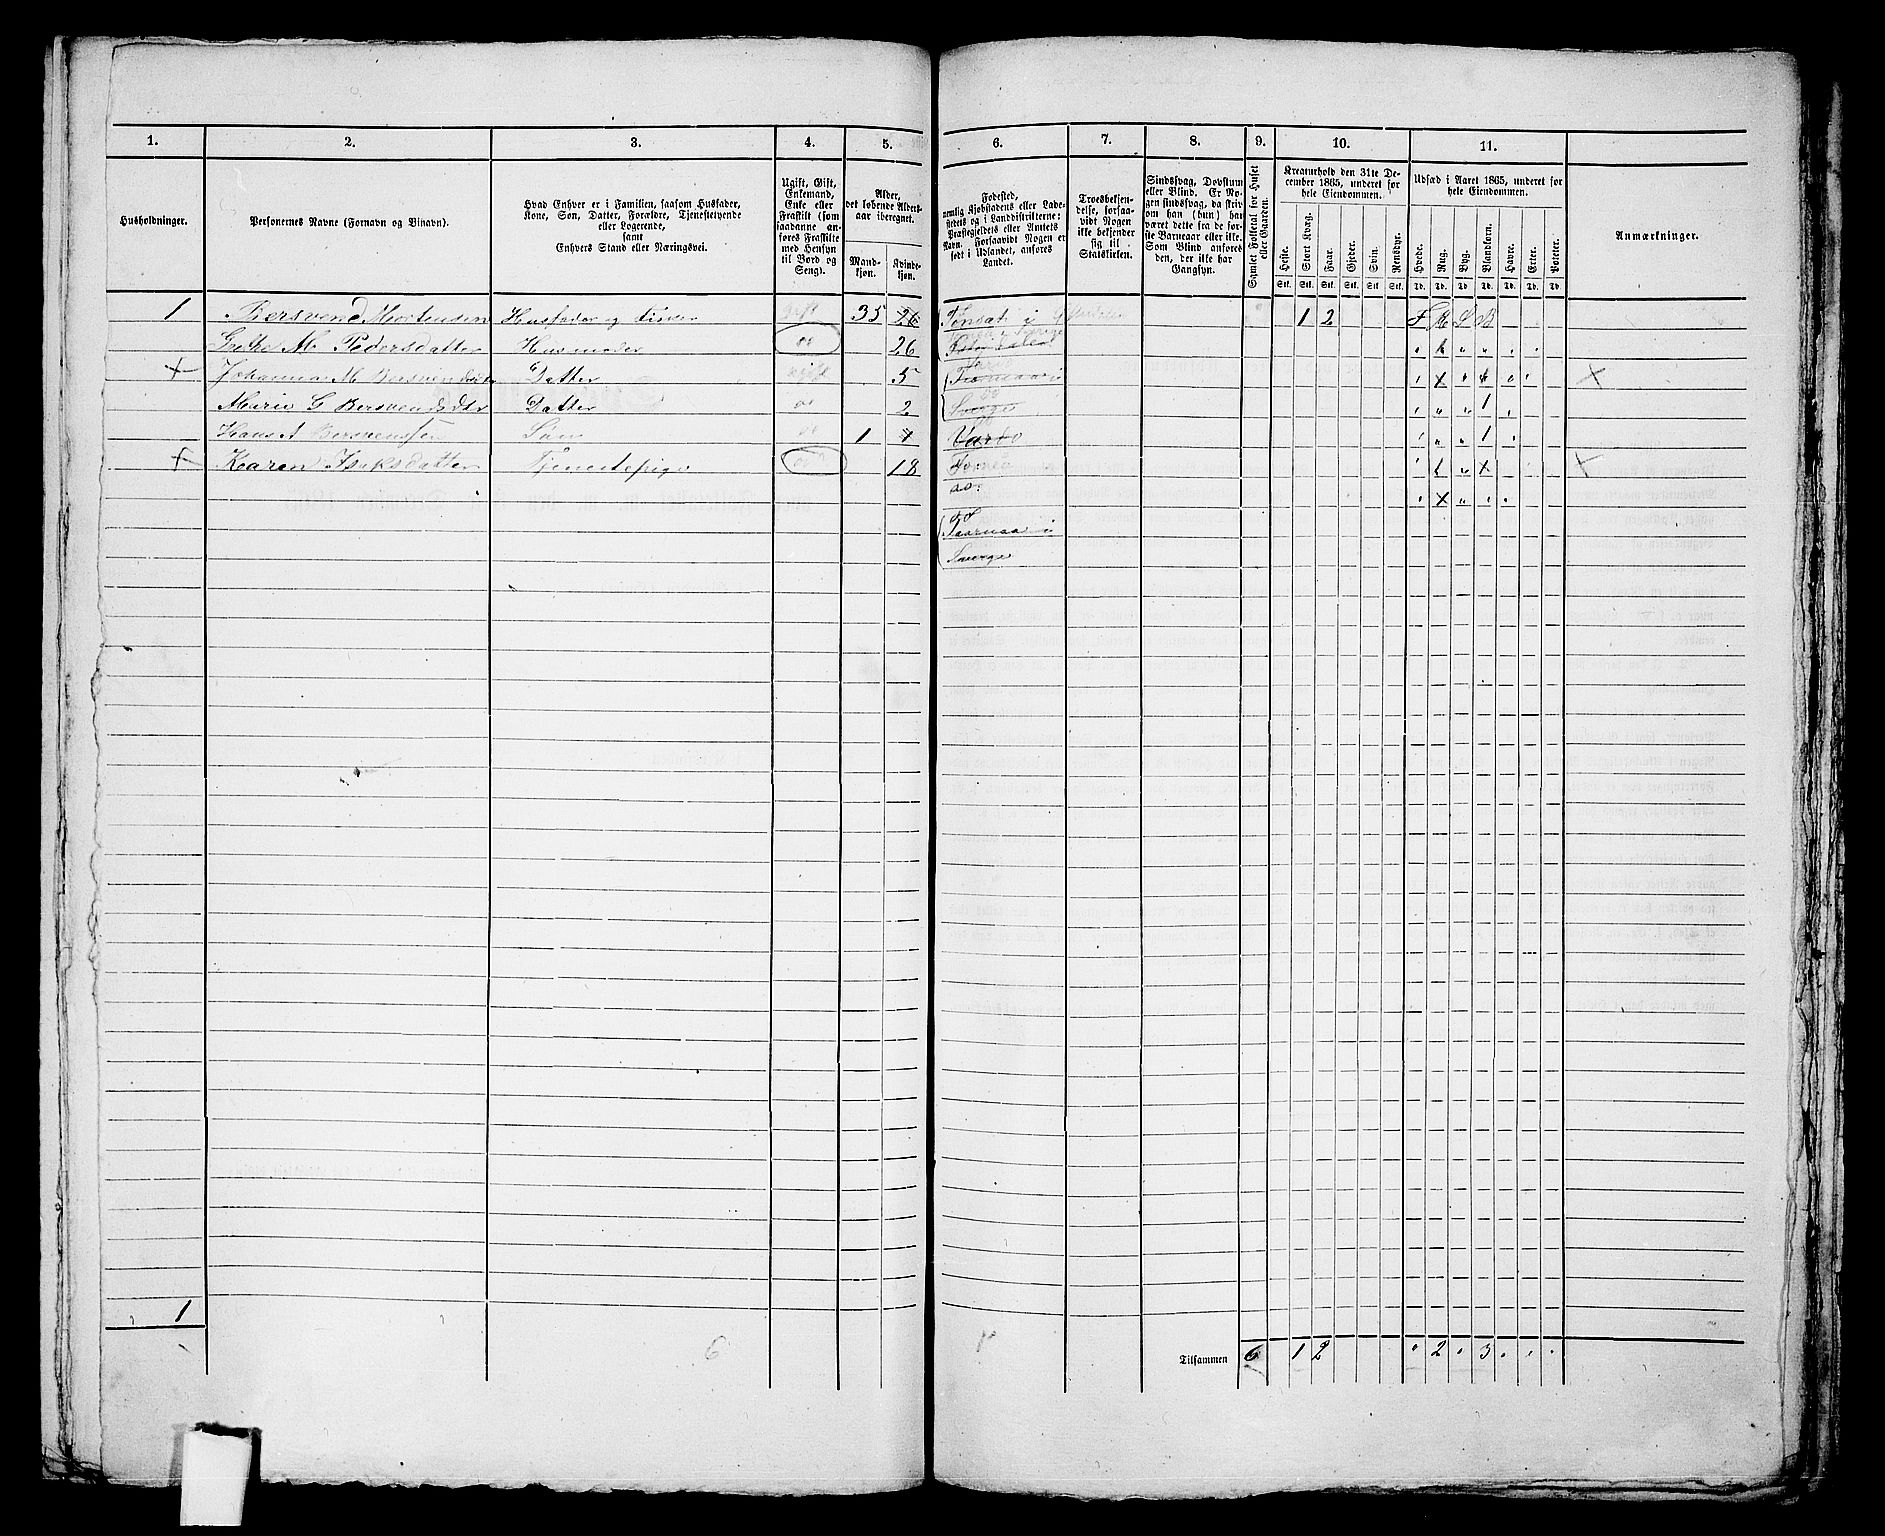 1. 2. 3. 4. 5. 6. 7. 8. 9. 10. 11.
Husholdninger.
Personernes Navne (Fornavn og Binavn).
Hvad Enhver er i Familien, saasom Husfader,
Kone, Søn, Datter, Forældre, Tjenestetyende
eller Logerende,
samt
Enhvers Stand eller Næringsvei.
Ugift, Gift,
Enkemand,
Enke eller
Fraskilt (som
saadanne an-
føres Fraskilte
med Hensyn
til Bord og
Seng).
Alder,
det løbende Alders-
aar iberegnet.
Mand-
kjøn.
Kvinde-
kjøn.
Fødested,
nemlig Kjøbstadens eller Lade-
stedets og i Landdistrikterne:
Præstegjeldets eller Amtets
Navn. Forsaavidt Nogen er
født i Udlandet, anføres
Landet.
Troesbekjen-
delse, forsaa-
vidt Nogen
ikke bekjender
sig til
Statskirken.
Sindssvag, Døvstum
eller Blind. Er No-
gen sindssvag, da skriv
om han (hun) har
været dette fra de før-
ste Barneaar eller ikke.
Som Blind anføres
den, der ikke har
Gangsyn.
Samlet Folketal for Huset
eller Gaarden.
Kreaturhold den 31te De-
cember 1865, underet før
hele Eiendommen.
Heste. Stort Kvæg. Faar. Gjeder. Svin. Rensdyr.
Stk. Stk. Stk. Stk. Stk. Stk.
Udsæd i Aaret 1865, underet før
hele Eiendommen.
Hvede. Rug. Byg. Blandkorn. Havre. Erter. Poteter.
Td. Td. Td. Td. Td. Td. Td.
Anmærkninger.
1 Bersvend Mortensen Husfader og Fisker gift 35 26 Tønsæt i 1 2 F R S B
Grethe M Pedersdatter Husmoder do 26
+ Johanna M Bersvendsdtr Datter ugift 5 ×
Marie G Bersvendsdtr Datter do 2 Sverge 1
Hans A Bersvensen Søn do 1 1 Vardo 1
+ Karen Isaksdatter Tjenestepige do 18 Torneå ×
do.
do
Taarnaa i
Sverge
1
6
Tilsammen 6 1 2 2 3